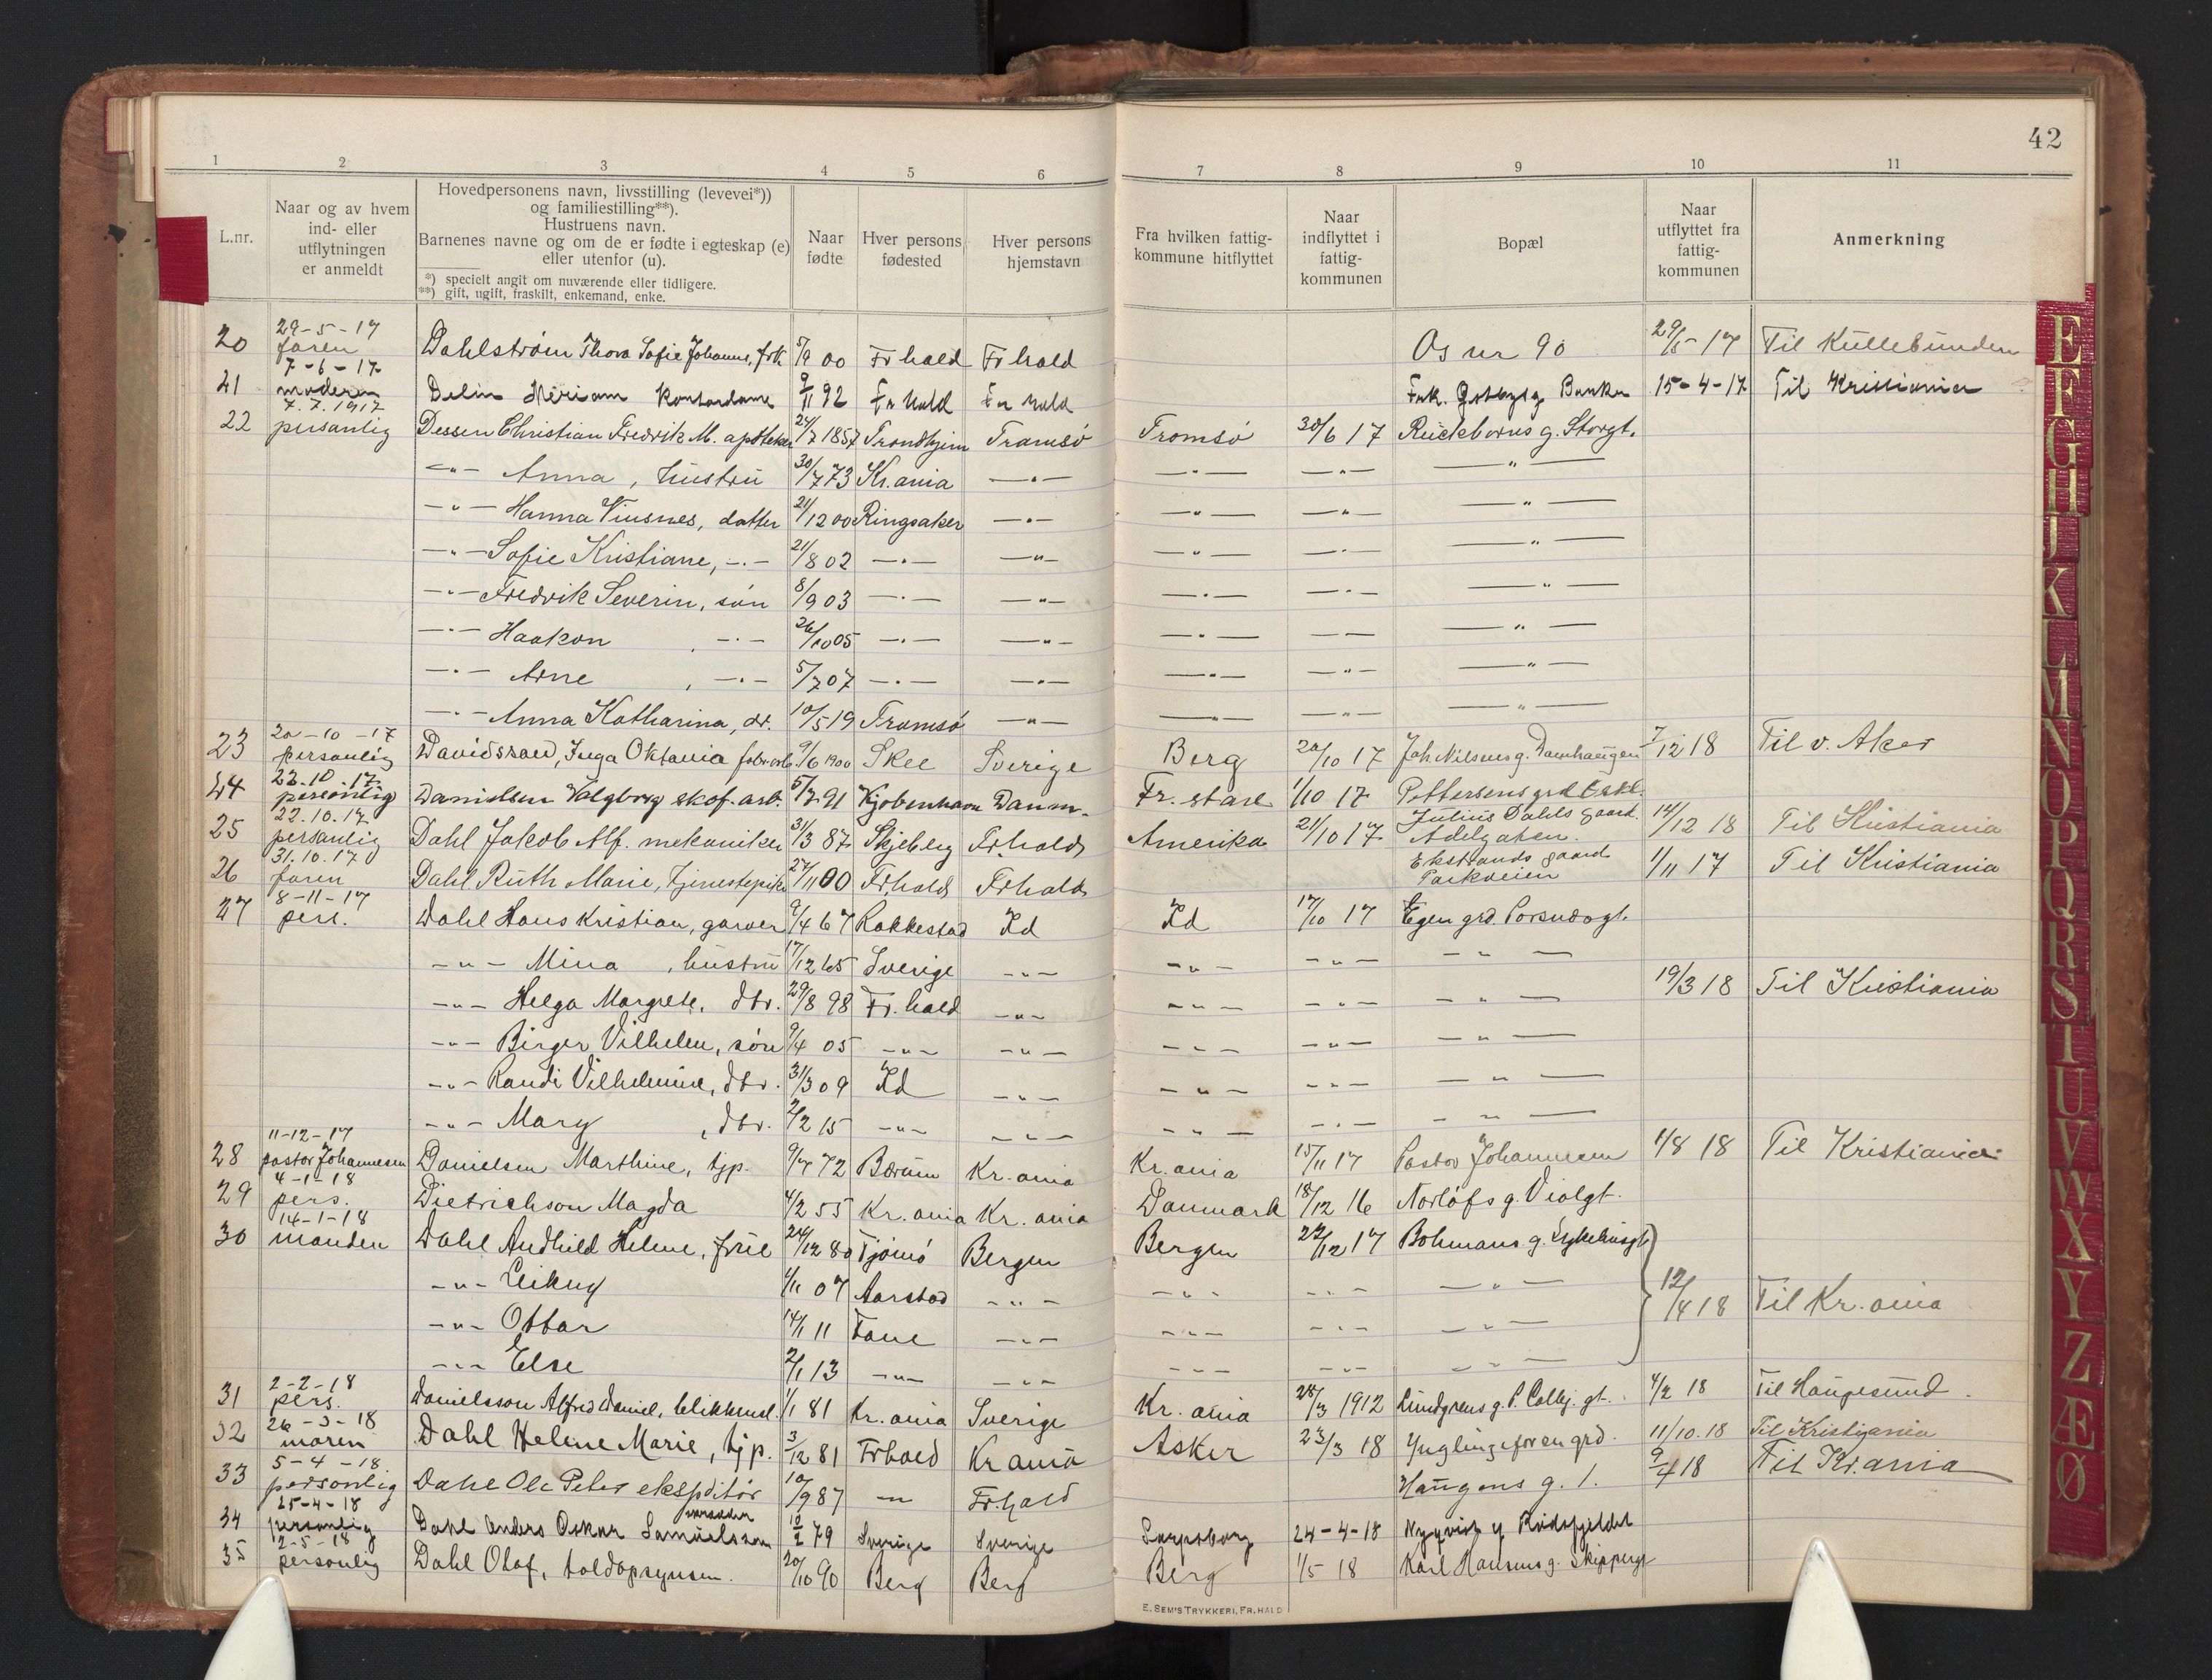 42
1 2 3 4 5 6 7 8 9 10 11
L.nr.
Naar og av hvem
ind- eller
utflytningen
er anmeldt
Hovedpersonens navn, livsstilling (levevei*))
og familiestilling**).
Hustruens navn.
Barnenes navne og om de er fødte i egteskap (e)
eller utenfor (u).
*) specielt angit om nuværende eller tidligere.
**) gift, ugift, fraskilt, enkemand, enke.
Naar
fødte
Hver persons
fødested
Hver persons
hjemstavn
Fra hvilken fattig-
kommune hitflyttet
Naar
indflyttet i
fattig-
kommunen
Bopæl
Naar
utflyttet fra
fattig-
kommunen
Anmerkning
20 29-5-17 faren Dahlström Thora Sofie Johanne, frk 5/9 00 Fr hald Fr hald Os nr 90 29/5-17 Til Kullebunden
21 7-6-17 moderen Delin Miriam Kontordame 9/11 92 Fr hald Fr hald Frk. Østbys g Banken 15-4-17 Til Kristiania
22 7.7.1917 personlig Dessen Christian Fredrik M. apotheker 24/7 1857 Trondhjem Tromsø Tromsø 30/6 17 Rückborns g. Storgt.
-"- Anna, hustru 30/7 73 Kr.ania -"- -"- -"- -"-
-"- Hanna Vinsnes, datter 21/12 00 Ringsaker -"- -"- -"- -"-
-"- Sofie Kristiane, -"- 21/8 02 -"- -"- -"- -"- -"-
-"- Fredrik Severin, søn 8/9 03 -"- -"- -"- -"- -"-
-"- Haakon, -"- 26/10 05 -"- -"- -"- -"- -"-
-"- Arne, -"- 5/7 07 -"- -"- -"- -"- -"-
-"- Anna Katharina, dr. 10/5 19 Tromsø -"- -"- -"- -"-
23 20-10-17 personlig Davidsson, Inga Oktavia fabr.arb. 9/6 1900 Skee Sverige Berg 20/10 17 Joh Nilsens g. Damhaugen 7/12 18 Til v. Aker
24 22.10.17 personlig Danielsen Valgborg skof. arb. 5/7 91 Kjøbenhavn Danm. Fr. stad 1/10 17 Pettersens grd
25 22.10.17 personlig Dahl Jakob Alf. mekaniker 31/3 87 Skjeberg Fr.hald Amerika 21/10 17 Julius Dahls gaard. Adelgaten. 14/12 18 Til Kristiania
26 31.10.17 faren Dahl Ruth Marie, tjenestepike 27/11 00 Fr.hald Fr.hald Ekstrands gaard Parkveien 1/11 17 Til Kristiania
27 8-11-17 pers. Dahl Hans Kristian, garver 9/4 67 Rakkestad Id Id 17/10 17 Egen grd. Porsnesgt.
-"- Mina, hustru 17/12 65 Sverige -"- -"- -"- -"-
-"- Helga Margrete, dtr. 29/8 98 Fr. hald -"- -"- -"- -"- 19/3 18 Til Kristiania
-"- Birger Vilhelm, søn 9/4 05 -"- -"- -"- -"- -"-
-"- Randi Vilhelmine, dtr. 31/3 09 Id -"- -"- -"- -"-
-"- Mary, dtr. 2/2 15 -"- -"- -"- -"- -"-
28 11-12-17 pastor Johannesen Danielsen Marthine, tjp. 9/7 72 Bærum Kr.ania Kr.ania 15/11 17 Pastor Johannesen 1/8 18 Til Kristiania
29 4-1-18 pers. Dietrichson Magda 4/2 55 Kr.ania Kr.ania Danmark 18/12 16 Norløfs g. Violgt.
30 14-1-18 manden Dahl Audhild Helene, frue 24/12 80 Tjømø Bergen Bergen 22/12 17 Bohmans g. Sykehusgt
-"- Eiknug 4/11 07 Aarstad -"- -"- -"- -"- 12/4 18 Til Kr.ania
-"- Ottar 14/1 11 Fane -"- -"- -"- -"-
-"- Else 2/1 13 -"- -"- -"- -"- -"-
31 2-2-18 pers. Danielsson Alfred Daniel, blikkensl. 1/1 81 Kr.ania Sverige Kr. ania 28/3 1912 Lundgrens g. P. Colbj. gt. 4/2 18 Til Haugesund.
32 26-3-18 moren Dahl Helene Marie, tjp. 3/12 81 Frhald Kr ania Asker 23/3 18 Ynglingeforen grd. 11/10.18 Til Kristiania
33 5-4-18 personlig Dahl Ole Peter ekspditør 10/9 87 -"- Fr.hald Haugens g. 1. 9/4 18 Til Kr.ania
34 25-4-18 personlig Dahl Anders Oskar Samuelsson 10/2 79 Sverige Sverige Sarpsborg 24-4-18 Nyqvist g Rødsfjeldet
35 2-5-18 personlig Dahl Olaf, toldopsynsm. 20/10 90 Berg Berg Berg 1/5 18 Karl Hansens g. Skippergt
E. SEM'S TRYKKERI, FR.HALD
E
F
G
H
J
K
L
M
N
O
P
Q
R
S
T
U
V
W
X
Y
Z
Æ
Ø